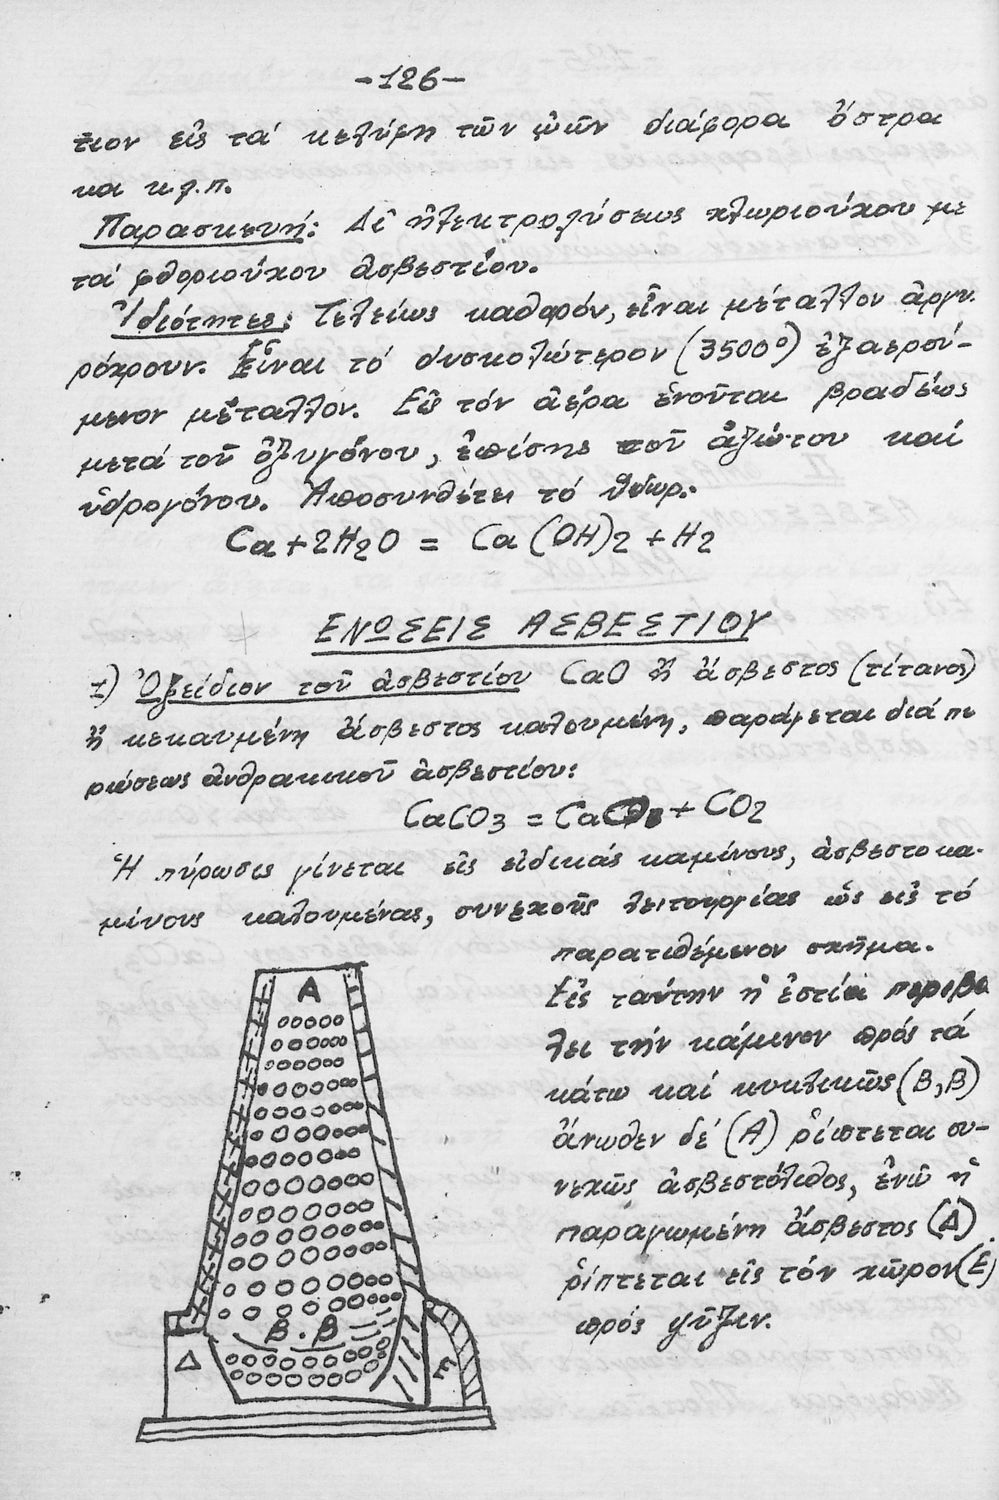 -126-
τιον εἰς τά κελύφη τῶν ᾠῶν διάφορα ὄστρα
και κ.λ.π.
Παρασκευή: Δι' ἠλεκτρολύσεως χλωριούχου με
τά φθοριούχου ἀσβεστίου.
Ἰδιότητες: Τελείως καθαρόν, εἶναι μέταλλον ἀργυ.
ρόχρουν. Εἶναι τό δυσκολώτερον (3500°) ἐξαερού-
μενον μέταλλον. Εἰς τόν ἀέρα ἑνοῦται βραδέως
μετά τοῦ ὀξυγόνου, ἐπίσης τοῦ ἀζώτου καί
ὑδρογόνου. Ἀποσυνθέτει τό ὕδωρ.
Ca+2H2O = Ca(OH)2+H2
ΕΝΩΣΕΙΣ ΑΣΒΕΣΤΙΟΥ
1) Ὀξείδιον τοῦ ἀσβεστίου CaO ἤ ἄσβεστος (τίτανος)
ἤ κεκαυμένη ἄσβεστος καλουμένη, παράγεται διά πυ
ρώσεως ἀνθρακικοῦ ἀσβεστίου:
CaCO3 = CaO + CO2
Ἡ πύρωσις γίνεται εἰς εἰδικάς καμίνους, ἀσβεστοκα-
μίνους καλουμένας, συνεχοῦς λειτουργίας ὡς εἰς τό
παρατιθέμενον σχῆμα.
Εἰς ταύτην ἡ ἑστία περιβα
λει τήν κάμινον πρός τά
κάτω καί κυκλικῶς (Β,Β)
ἄνωθεν δέ (Α) ῥίπτεται συ-
νεχῶς ἀσβεστόλιθος, ἐνῶ ἡ
παραγωμένη ἄσβεστος (Δ)
ῥίπτεται εἰς τόν χῶρον (Ε)
πρός ψῦξιν.
Α
Β.Β
Δ
Ε